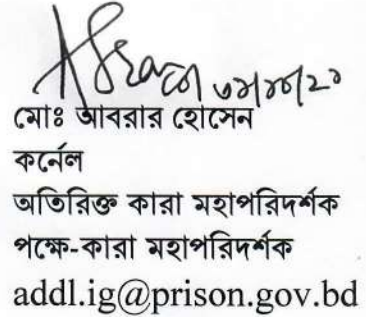 মোঃ আবরার হোসেন
কর্নেল
অতিরিক্ত কারা মহাপরিদর্শক
পক্ষে-কারা মহাপরিদর্শক
addl.ig@prison.gov.bd